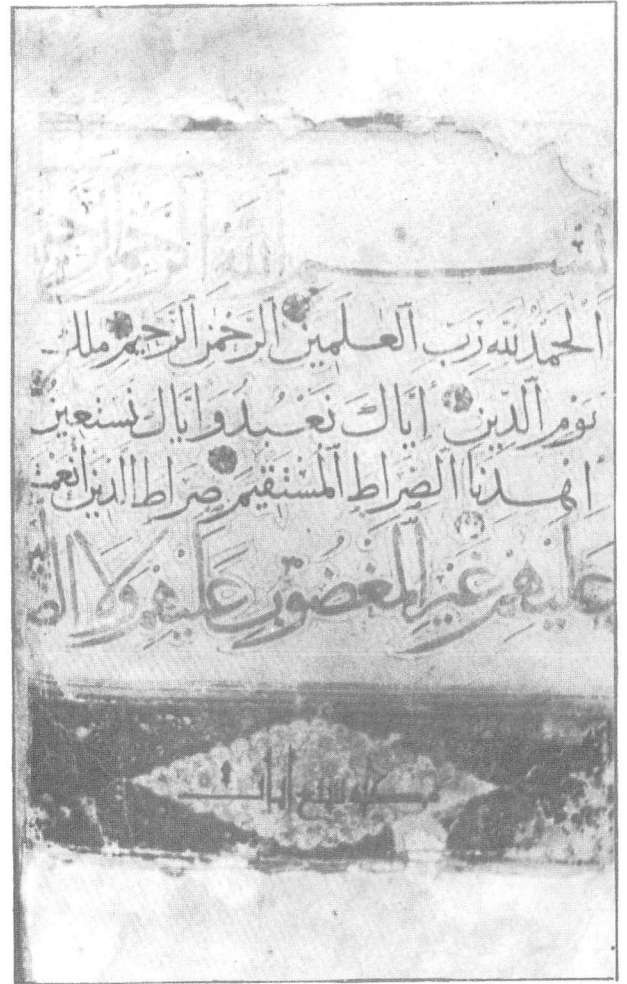 بسم الله الرحمن الرحيم
اَلْحَمْدُ لله رَبِّ اَلْعٰلَمِينَ اَلرَّحْمٰنِ اَلرَّحِيمِ ملك
يَوْمِ اَلدِّينِ اِيَّاكَ نَعْبُدُ وَاِيَّاكَ نَسْتَعِينُ
اِهْدِنَا اَلصِّرَاطَ اَلْمُسْتَقِيمَ صِرَاطَ الَّذِينَ اَنْعَمْتَ
عَلَيْهِمْ غَيْرِ اَلْمَغْضُوبِ عَلَيْهِمْ وَلَا
سبع ايات